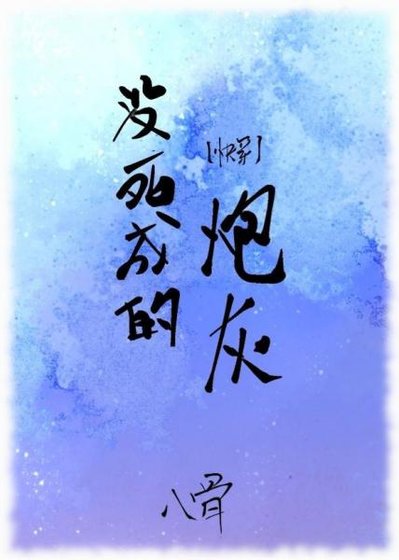 没死成的
【快穿】
炮灰
八骨